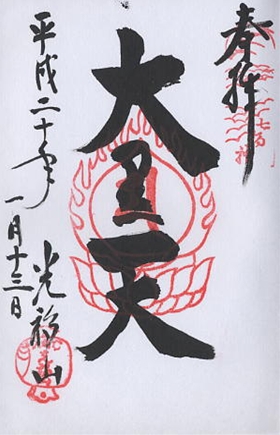 奉拝
大黒天
平成二十年
一月十三日
光福山